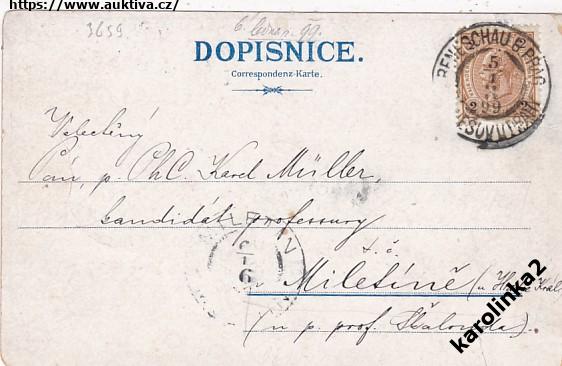 https://www.auktiva.cz/
3659
DOPISNICE.
Correspondenz-Karte.
BENESCHAU B. PRAG
5
99
Velectěný
Pán, p. PhC. Karel Müller,
kandidát professury
t. č.
v Miletíně (u
(u p. prof. Škalouda).
karolinka2